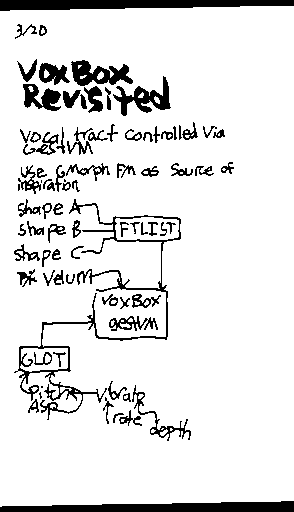 3/20
VoxBox
Revisited
Vocal tract controlled via
GestVM
Use GMorph Fm as source of
inspiration
shape A
shape B
shape C
FTLIST
Velum
VoxBox
gestVM
GLOT
Pitch
Asp
Vibrato
rate
depth